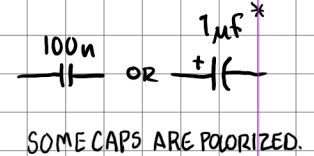 100n OR 1µf*
+
SOME CAPS ARE POLORIZED.